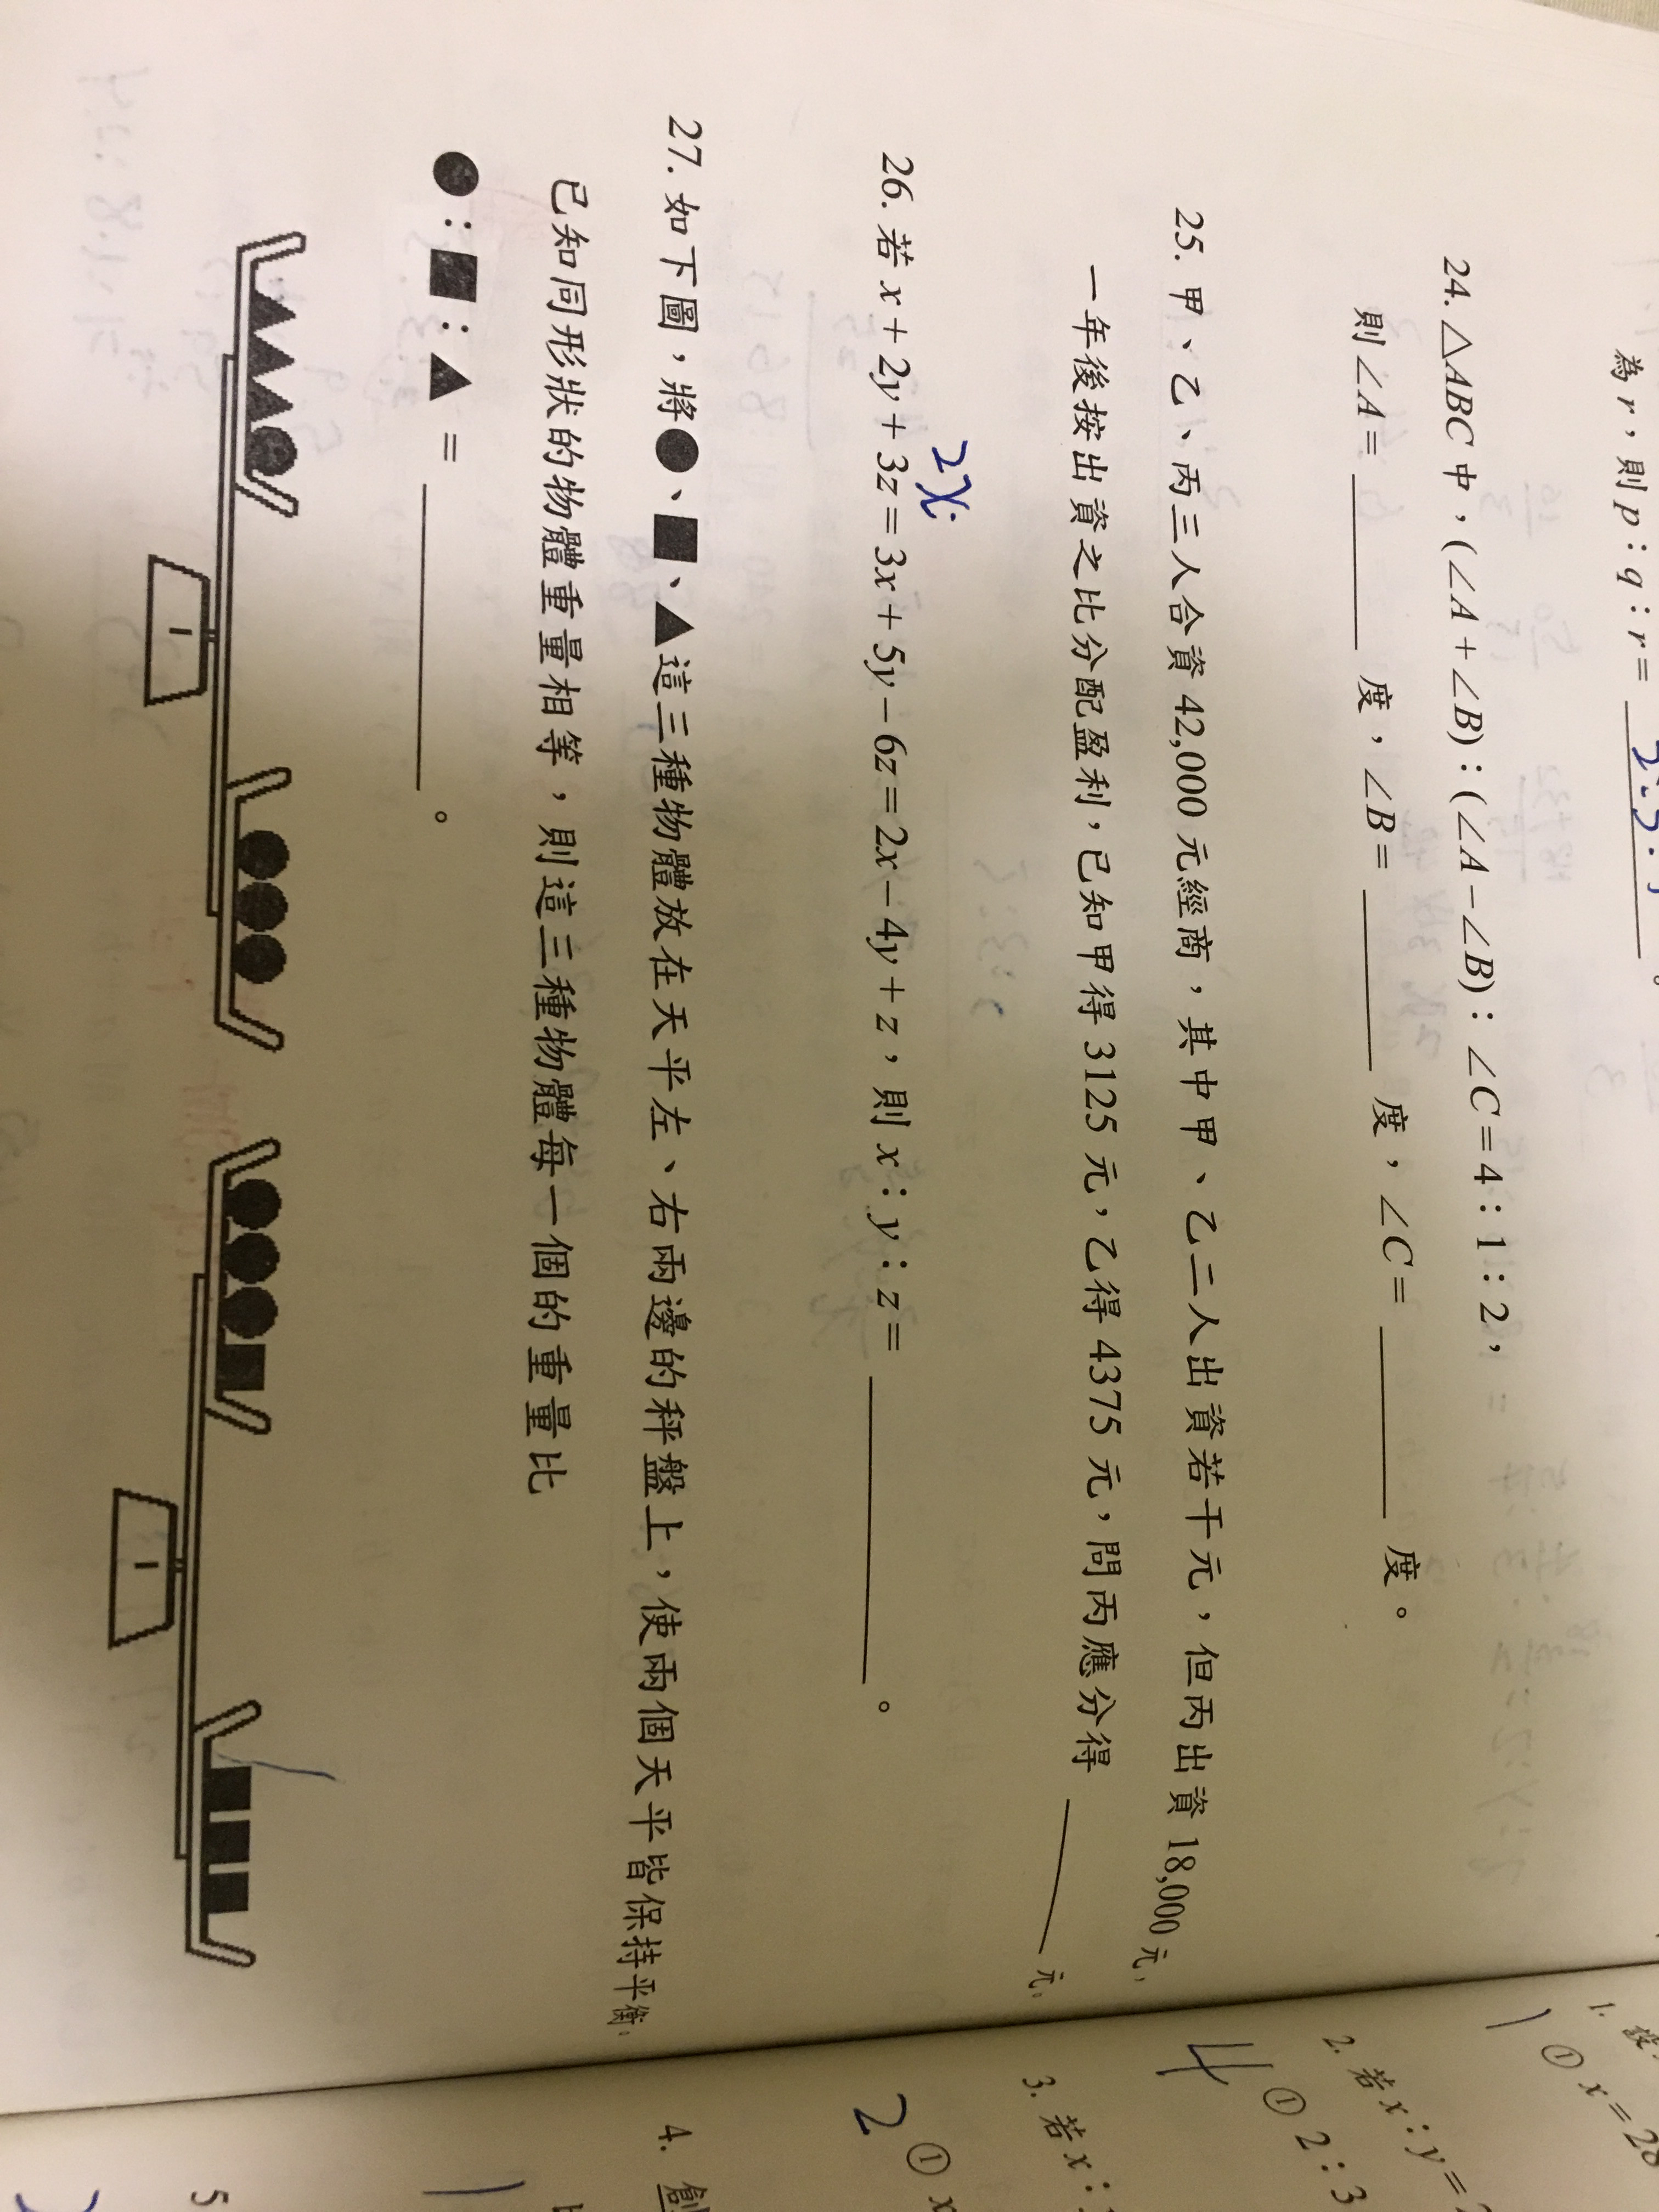 為 r，則 p：q：r＝
24. △ABC 中，(∠A＋∠B)：(∠A－∠B)：∠C＝4：1：2，
則∠A＝ 度，∠B＝ 度，∠C＝ 度。
25. 甲、乙、丙三人合資 42,000 元經商，其中甲、乙二人出資若干元，但丙出資 18,000 元，
一年後按出資之比分配盈利，已知甲得 3125 元，乙得 4375 元，問丙應分得 元。
2x
26. 若 x＋2y＋3z＝3x＋5y－6z＝2x－4y＋z，則 x：y：z＝ 。
27. 如下圖，將●、■、▲這三種物體放在天平左、右兩邊的秤盤上，使兩個天平皆保持平衡，
已知同形狀的物體重量相等，則這三種物體每一個的重量比
●：■：▲＝ 。
1.
① x＝28
2. 若 x：y＝
4 ① 2：3
3. 若 x：
2 ① x
4. 創
5